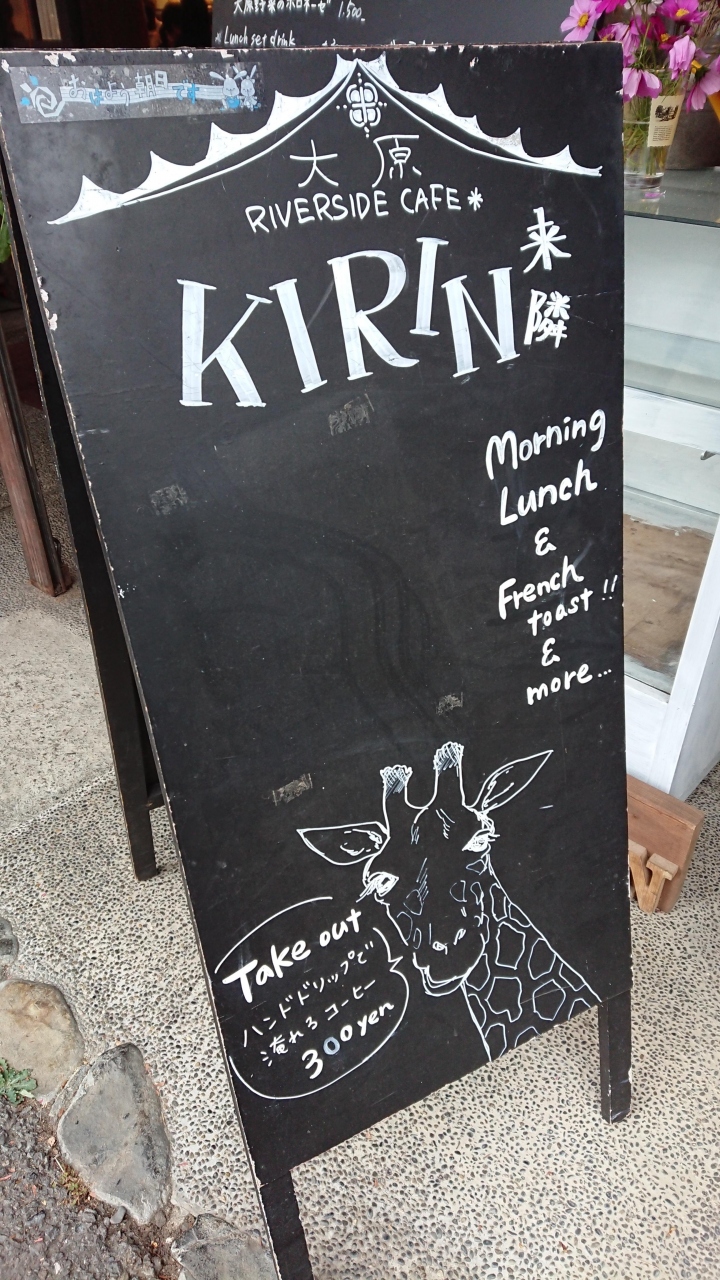 大原野菜のボロネーゼ" 1,500_
Lunch set drink
おはよう朝日です
大原
RIVERSIDE CAFE*
KIRIN
来隣
Morning
Lunch
&
French
toast !!
&
more...
Take out
ハンドドリップで
淹れるコーヒー
300yen